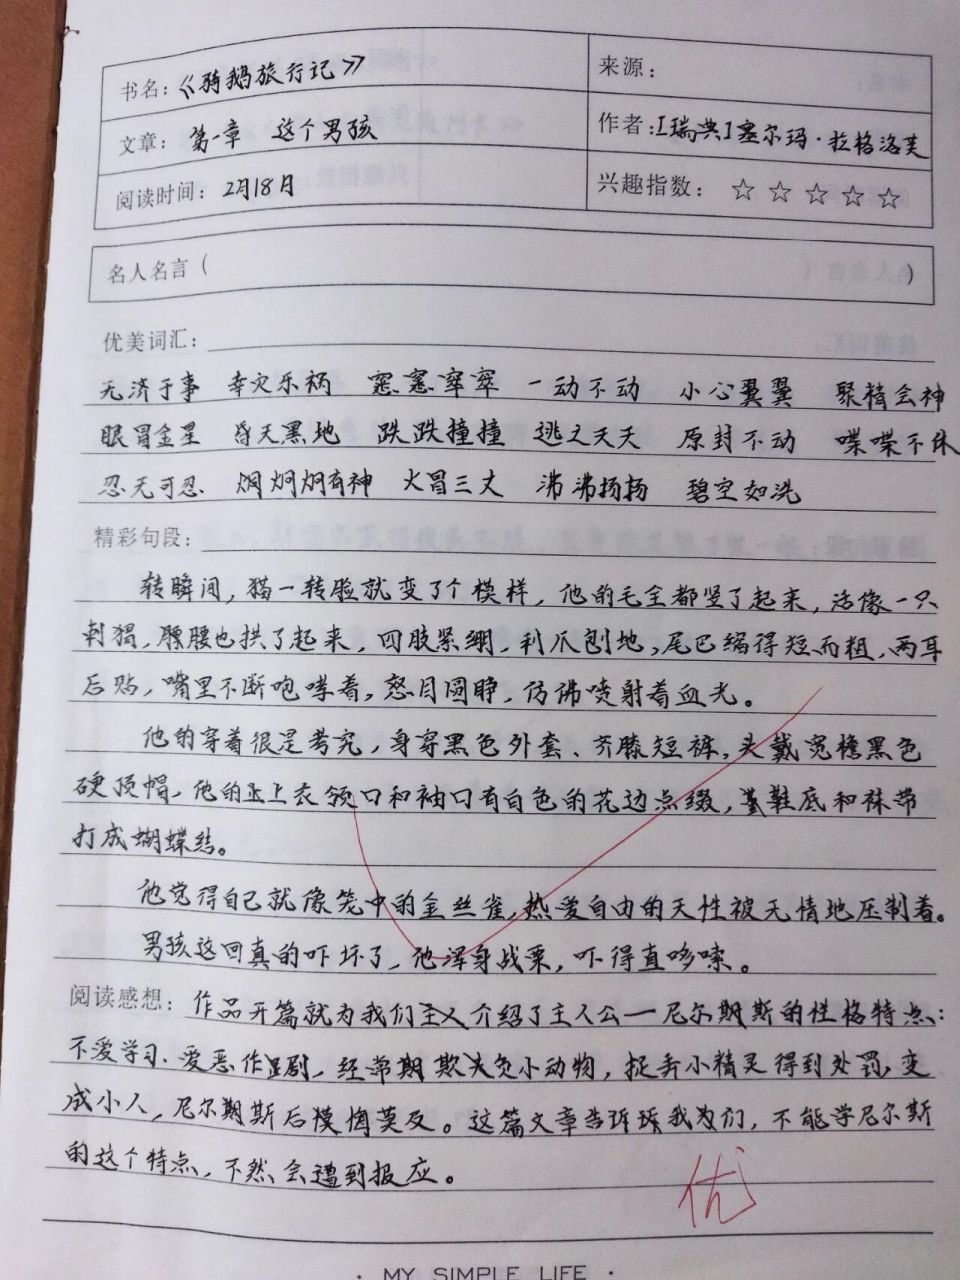 书名：《骑鹅旅行记》 来源：
文章： 第一章 这个男孩 作者：[瑞典]塞尔玛·拉格洛芙
阅读时间： 2月18日 兴趣指数： ☆ ☆ ☆ ☆ ☆
名人名言（ ）
优美词汇：
无济于事 幸灾乐祸 窸窸窣窣 一动不动 小心翼翼 聚精会神
眼冒金星 昏天黑地 跌跌撞撞 逃之夭夭 原封不动 喋喋不休
忍无可忍 炯炯有神 火冒三丈 沸沸扬扬 碧空如洗
精彩句段：
转瞬间，猫一转脸就变了个模样，他的毛全都竖了起来，活像一只
刺猬，腰也拱了起来，四肢紧绷，利爪刨地，尾巴缩得短而粗，两耳
后贴，嘴里不断咆哮着，怒目圆睁，仿佛喷射着血光。
他的穿着很是考究，身穿黑色外套、齐膝短裤，头戴宽檐黑色
硬顶帽，他的上衣领口和袖口有白色的花边点缀，鞋底和袜带
打成蝴蝶结。
他觉得自己就像笼中的金丝雀，热爱自由的天性被无情地压制着。
男孩这回真的吓坏了，他浑身战栗，吓得直哆嗦。
阅读感想：作品开篇就为我们介绍了主人公—尼尔斯的性格特点：
不爱学习、爱恶作剧，经常欺负小动物，捉弄小精灵得到处罚，变
成小人，尼尔斯后悔莫及。这篇文章告诉我们，不能学尼尔斯
的这个特点，不然会遭到报应。
优
· MY SIMPLE LIFE ·